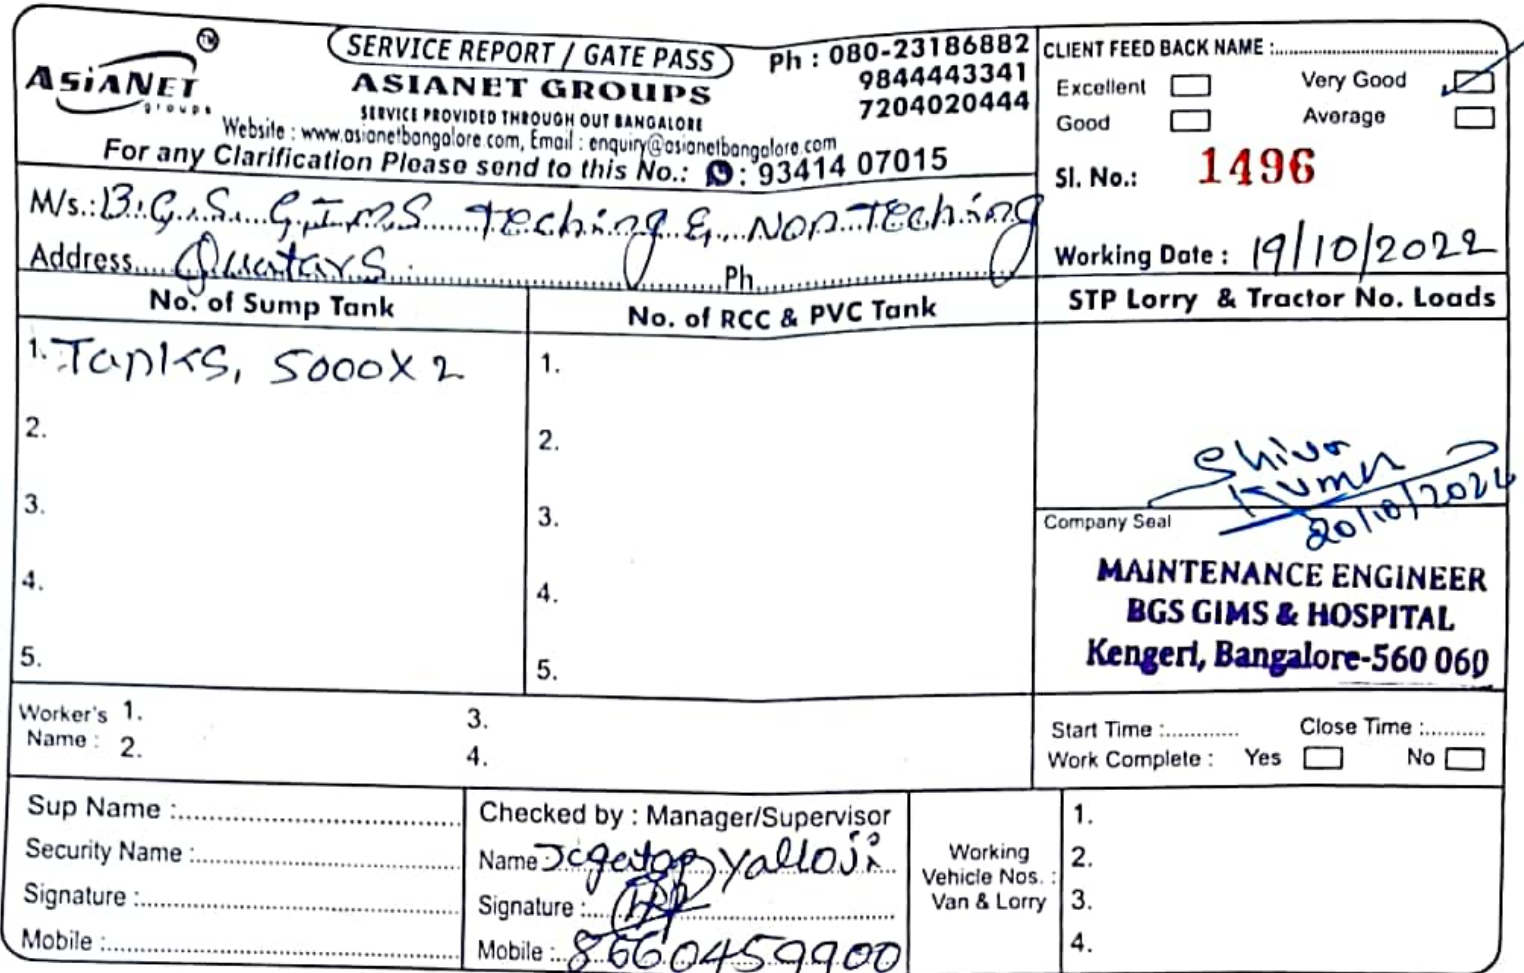 TM
ASiANET
groups
SERVICE REPORT / GATE PASS
ASIANET GROUPS
SERVICE PROVIDED THROUGH OUT BANGALORE
Website : www.asianetbangalore.com, Email : enquiry@asianetbangalore.com
For any Clarification Please send to this No.: : 93414 07015
Ph : 080-23186882
9844443341
7204020444
CLIENT FEED BACK NAME :
Excellent Very Good
Good Average
Sl. No.: 1496
M/s.: B.G.S. GIMS Teching & Non Teching
Address Quatars Ph
Working Date : 19/10/2022
No. of Sump Tank
No. of RCC & PVC Tank
STP Lorry & Tractor No. Loads
1. Tanks, 5000X2
2.
3.
4.
5.
1.
2.
3.
4.
5.
Shiva
Kumar
20/10/2022
Company Seal
MAINTENANCE ENGINEER
BGS GIMS & HOSPITAL
Kengeri, Bangalore-560 060
Worker's 1. 3.
Name : 2. 4.
Start Time : Close Time :
Work Complete : Yes No
Sup Name :
Security Name :
Signature :
Mobile :
Checked by : Manager/Supervisor
Name : Yalloji
Signature :
Mobile : 8660459900
Working
Vehicle Nos. :
Van & Lorry
1.
2.
3.
4.